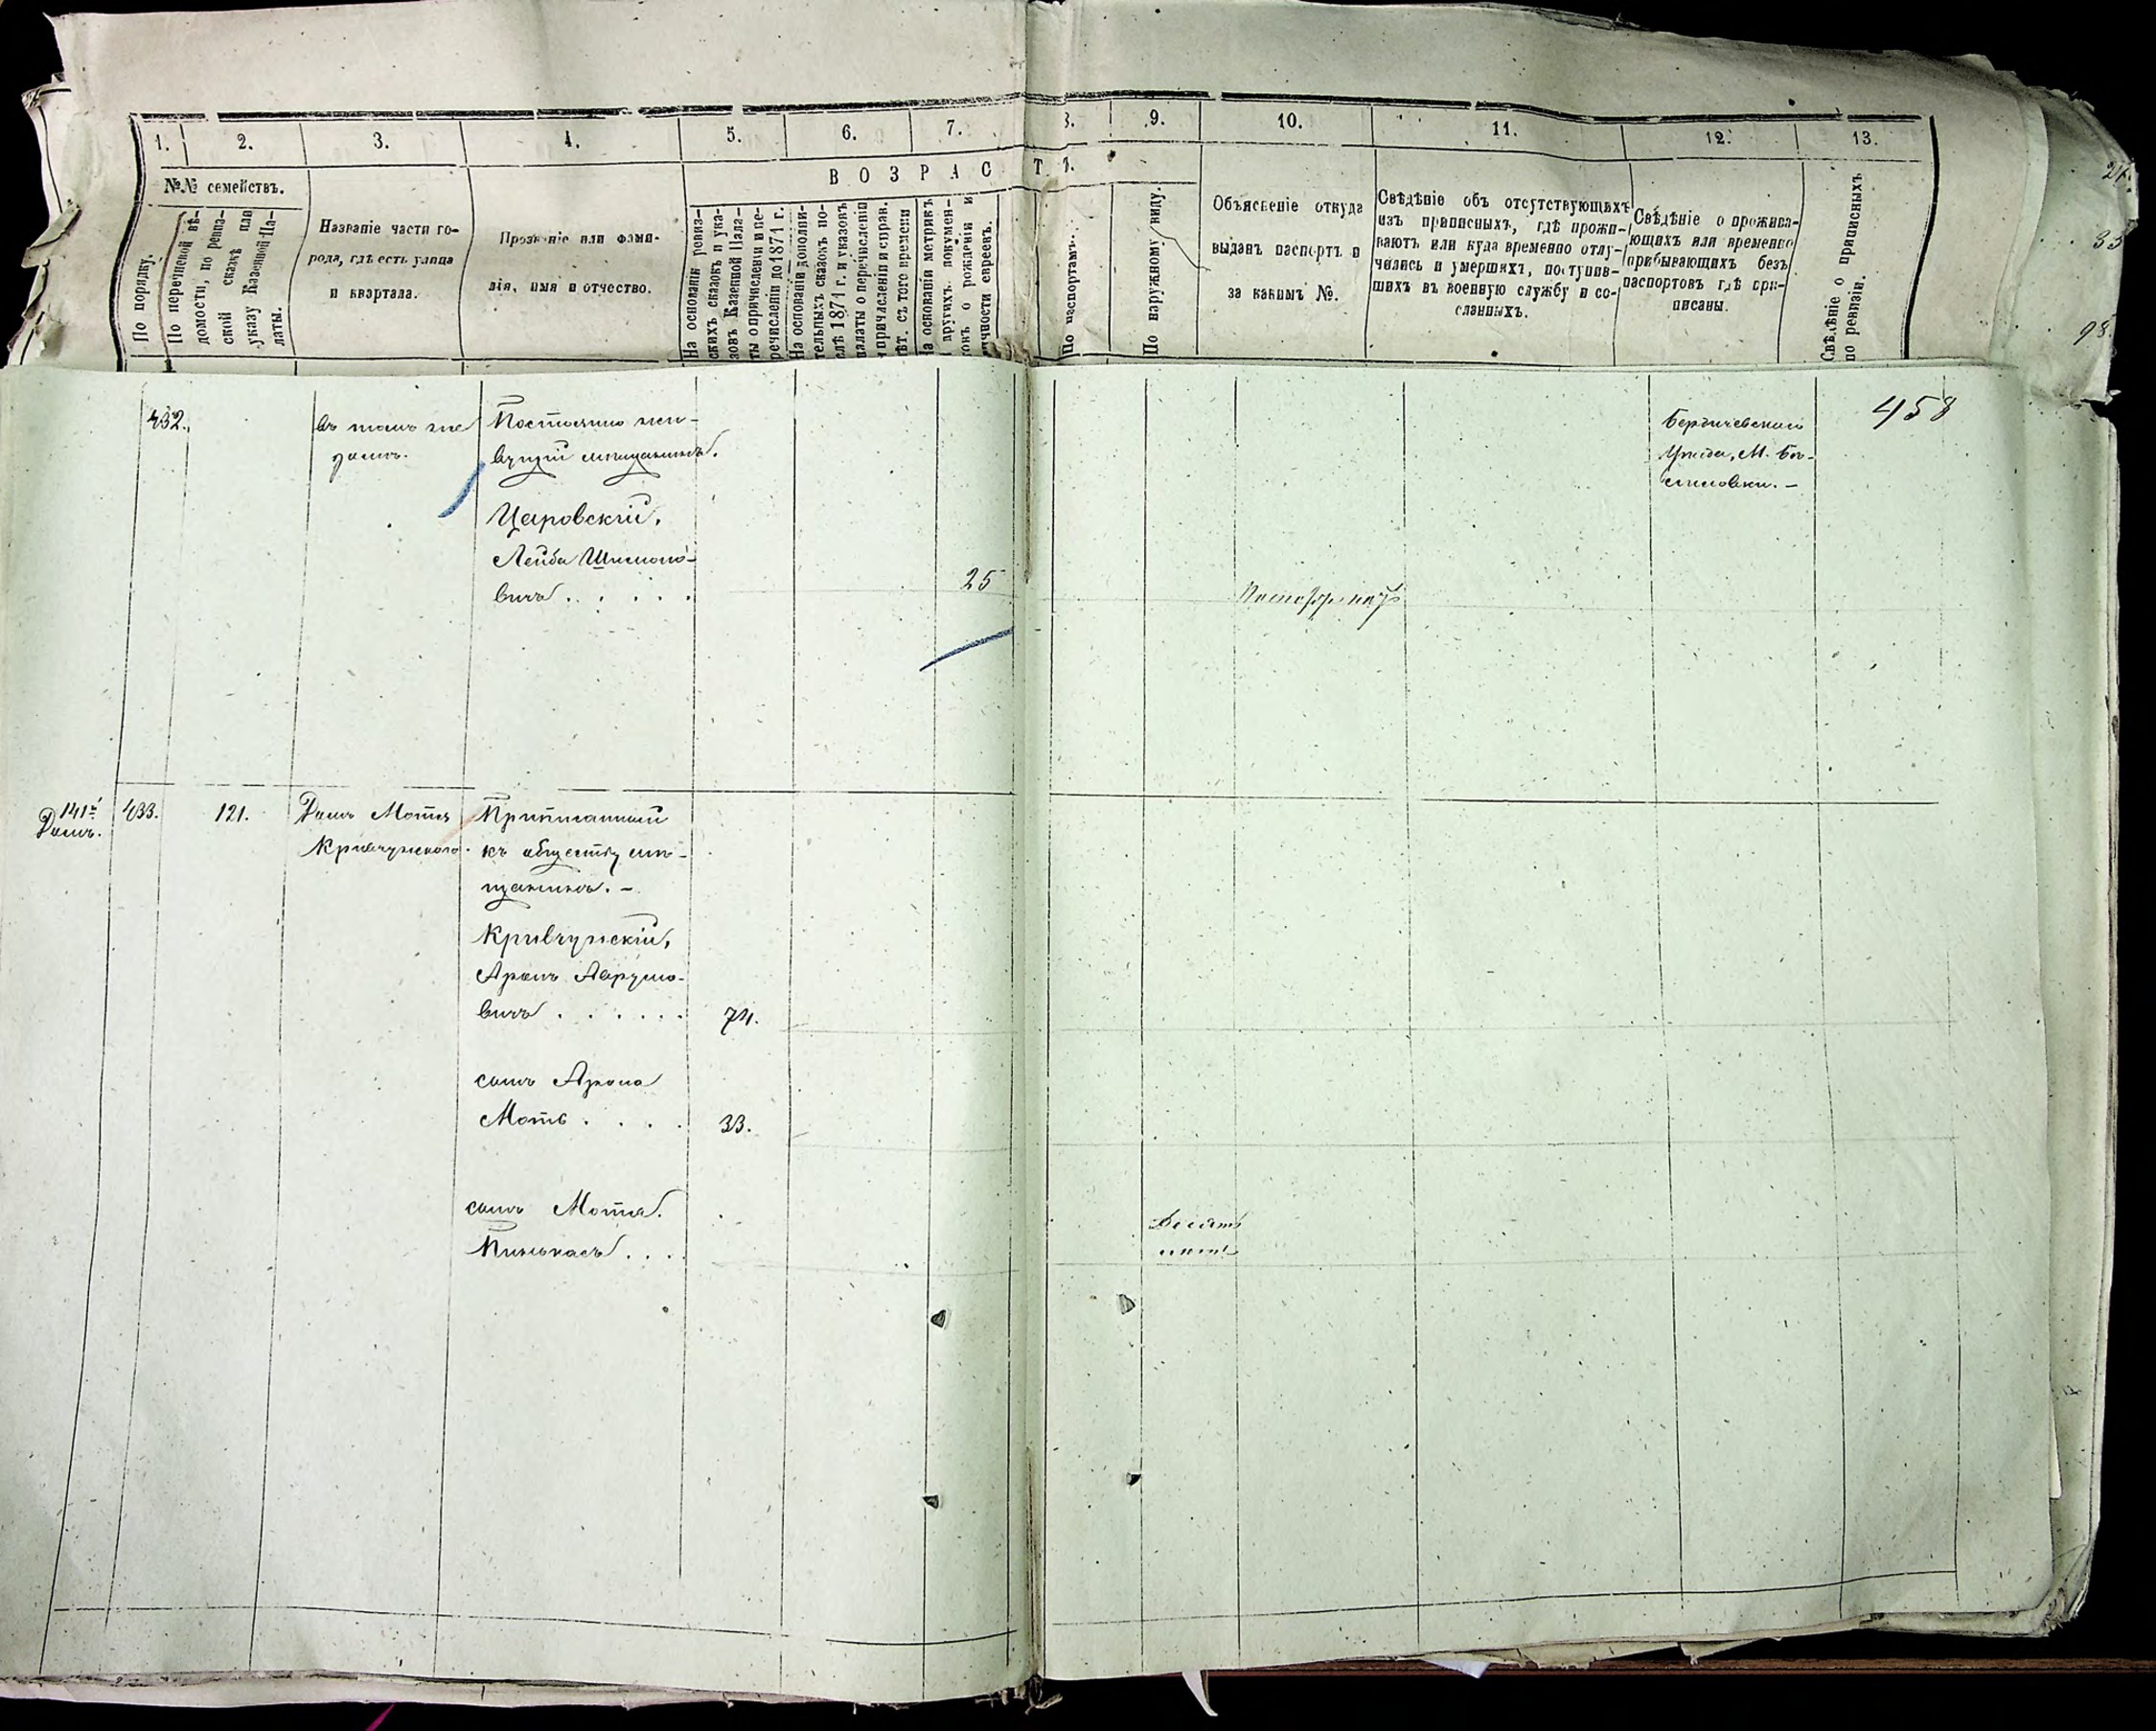 1. 2. 3. 4. 5. 6. 7. 8. 9. 10. 11. 12. 13.
№№ семействъ.
ВОЗРАСТЪ.
По порядку.
По перечневой вѣ-
домости, по ревиз-
ской сказкѣ или
указу Казенной Па-
латы.
Названіе части го-
рода, гдѣ есть улица
и квартала.
Прозваніе или фами-
лія, имя и отчество.
На основаніи ревиз-
скихъ сказокъ и ука-
зовъ Казенной Пала-
ты о причисленіи и пе-
речисленіи до 1871 г.
На основаніи дополни-
тельныхъ сказокъ по-
слѣ 1871 г. и указовъ
палаты о перечисленіи
и причисленіи и справ.
лѣт. съ того времени
На основаніи метрикъ
и другихъ докумен-
товъ о рожденіи и
личности евреевъ.
По паспортамъ.
По наружному виду.
Объясненіе откуда
выданъ паспортъ и
за какимъ №.
Свѣдѣніе объ отсутствующихъ
изъ приписныхъ, гдѣ прожи-
ваютъ или куда временно отлу-
чились и умершихъ, поступив-
шихъ въ военную службу и со-
сланныхъ.
Свѣдѣніе о прожива-
ющихъ или временно
прибывающихъ безъ
паспортовъ гдѣ при-
писаны.
Свѣдѣніе о приписныхъ
по ревизіи.
432.
въ томъ же
домѣ.
Постоянно жи-
вущій мещанинъ.
Царовскій,
Лейба Шмионо-
вичъ . . . . .
25
Бердичевскаго
Уѣзда, М.
458
141й
Домъ.
433.
121.
Домъ Мотя
Кривчунскаго.
Приписанный
къ обществу мѣ-
щанинъ. –
Кривчунскій,
Аронъ Аврумо-
вичъ . . . . . .
74.
сынъ Арона
Моть . . . .
33.
сынъ Мотя.
Пинькасъ . . .
Десять
лѣтъ
98.